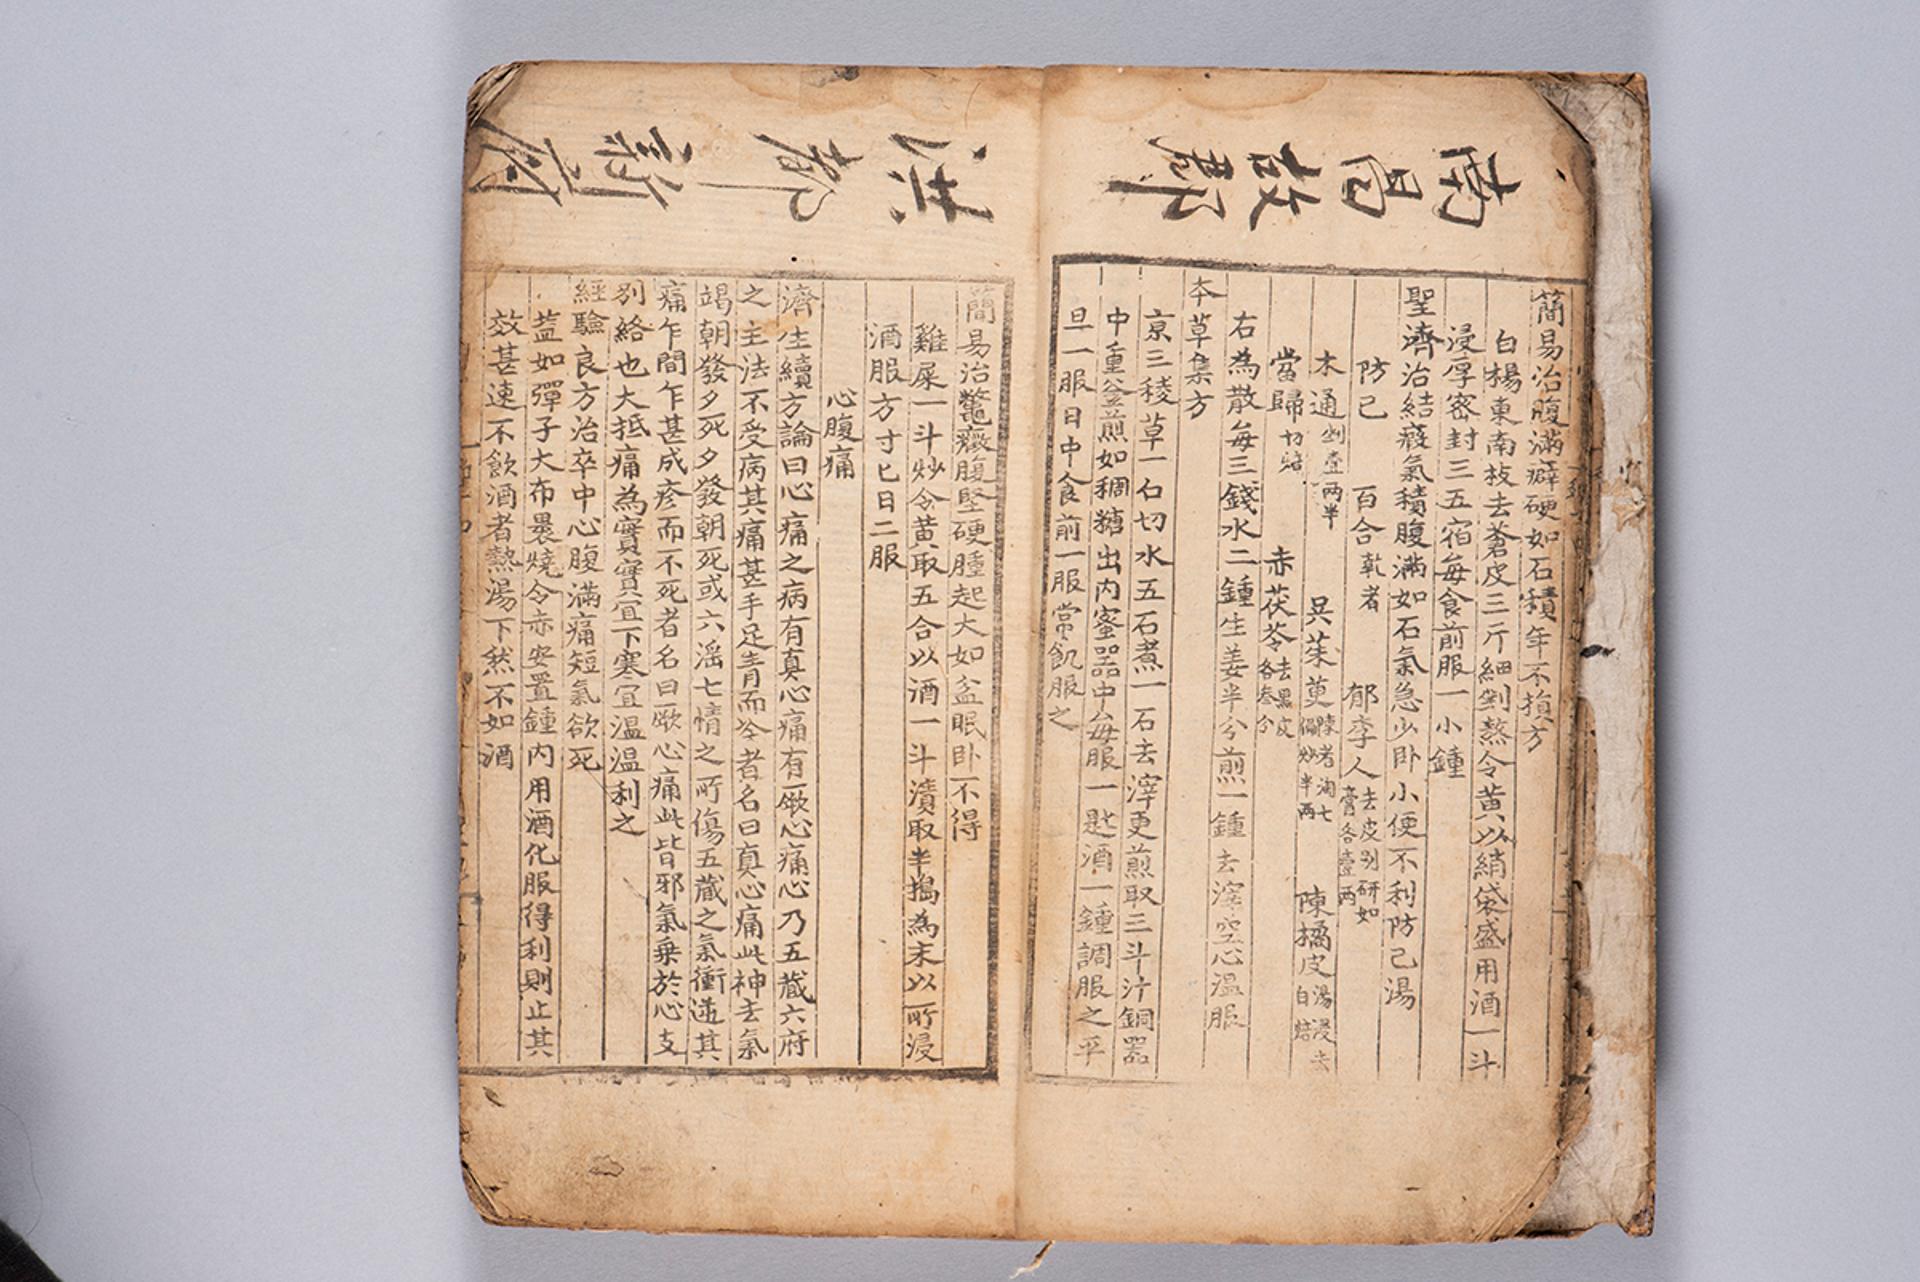 南昌故郡
洪都新府
簡易治腹滿癖硬如石積年不損方
白楊東南枝去蒼皮三斤細剉熬令黃以絹袋盛用酒一斗
浸厚密封三五宿每食前服一小鍾
聖濟治結癥氣積腹滿如石氣急少卧小便不利防己湯
防己 百合乾者 郁李人去皮别研如膏各壹两
木通剉壹两半 吳茱萸 陳橘皮湯浸去白焙
當歸切焙 赤茯苓去黑皮各叁分
右為散每三錢水二鍾生姜半分煎一鍾去滓空心温服
本草集方
京三稜草一石切水五石煮一石去滓更煎取三斗汁銅器
中重釜煎如稠糖出内蜜器中每服一匙酒一鍾調服之平
旦一服日中食前一服常飢服之
簡易治鼈癥腹堅硬腫起大如盆眠卧不得
雞屎一斗炒令黃取五合以酒一斗漬取半搗為末以所浸
酒服方寸匕日二服
心腹痛
濟生續方論曰心痛之病有真心痛有厥心痛心乃五藏六府
之主法不受病其痛甚手足青而冷者名曰真心痛此神去氣
竭朝發夕死夕發朝死或六淫七情之所傷五藏之氣衝逆其
痛乍間乍甚成疹而不死者名曰厥心痛此皆邪氣乗於心支
别絡也大抵痛為實實宜下寒宜温温利之
經驗良方治卒中心腹滿痛短氣欲死
盐如彈子大布褁燒令赤安置鍾内用酒化服得利則止其
效甚速不飲酒者熱湯下然不如酒